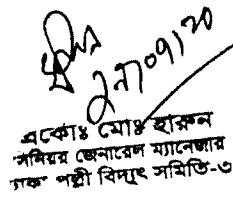 ২৭/০৭/২০
একোঃ মোঃ হারুন
সিনিয়র জেনারেল ম্যানেজার
ঢাকা পল্লী বিদ্যুৎ সমিতি-৩